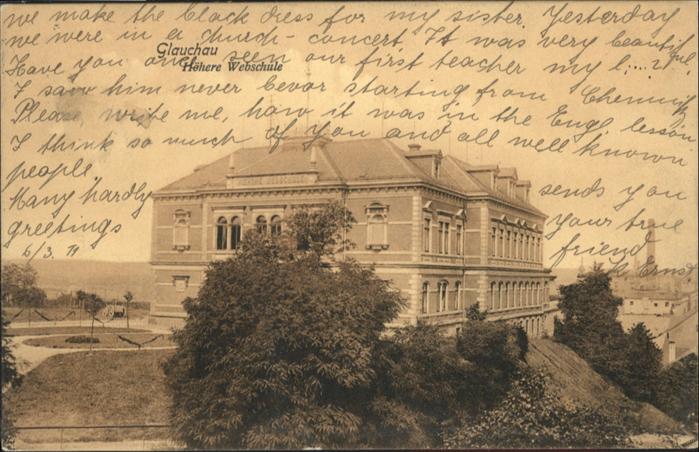 we make the black dress for my sister. Yesterday
we were in a church-concert. It was very beautiful
Glauchau
Höhere Webschule
Have you once seen our first teacher my l....?
I saw him never bevor starting from Chemnitz
Please, write me, how it was in the Engl. lesson
I think so much of you and all well known
people.
Many hardly
greetings
6/3. 11
sends you
your true
friend
K. Ernst